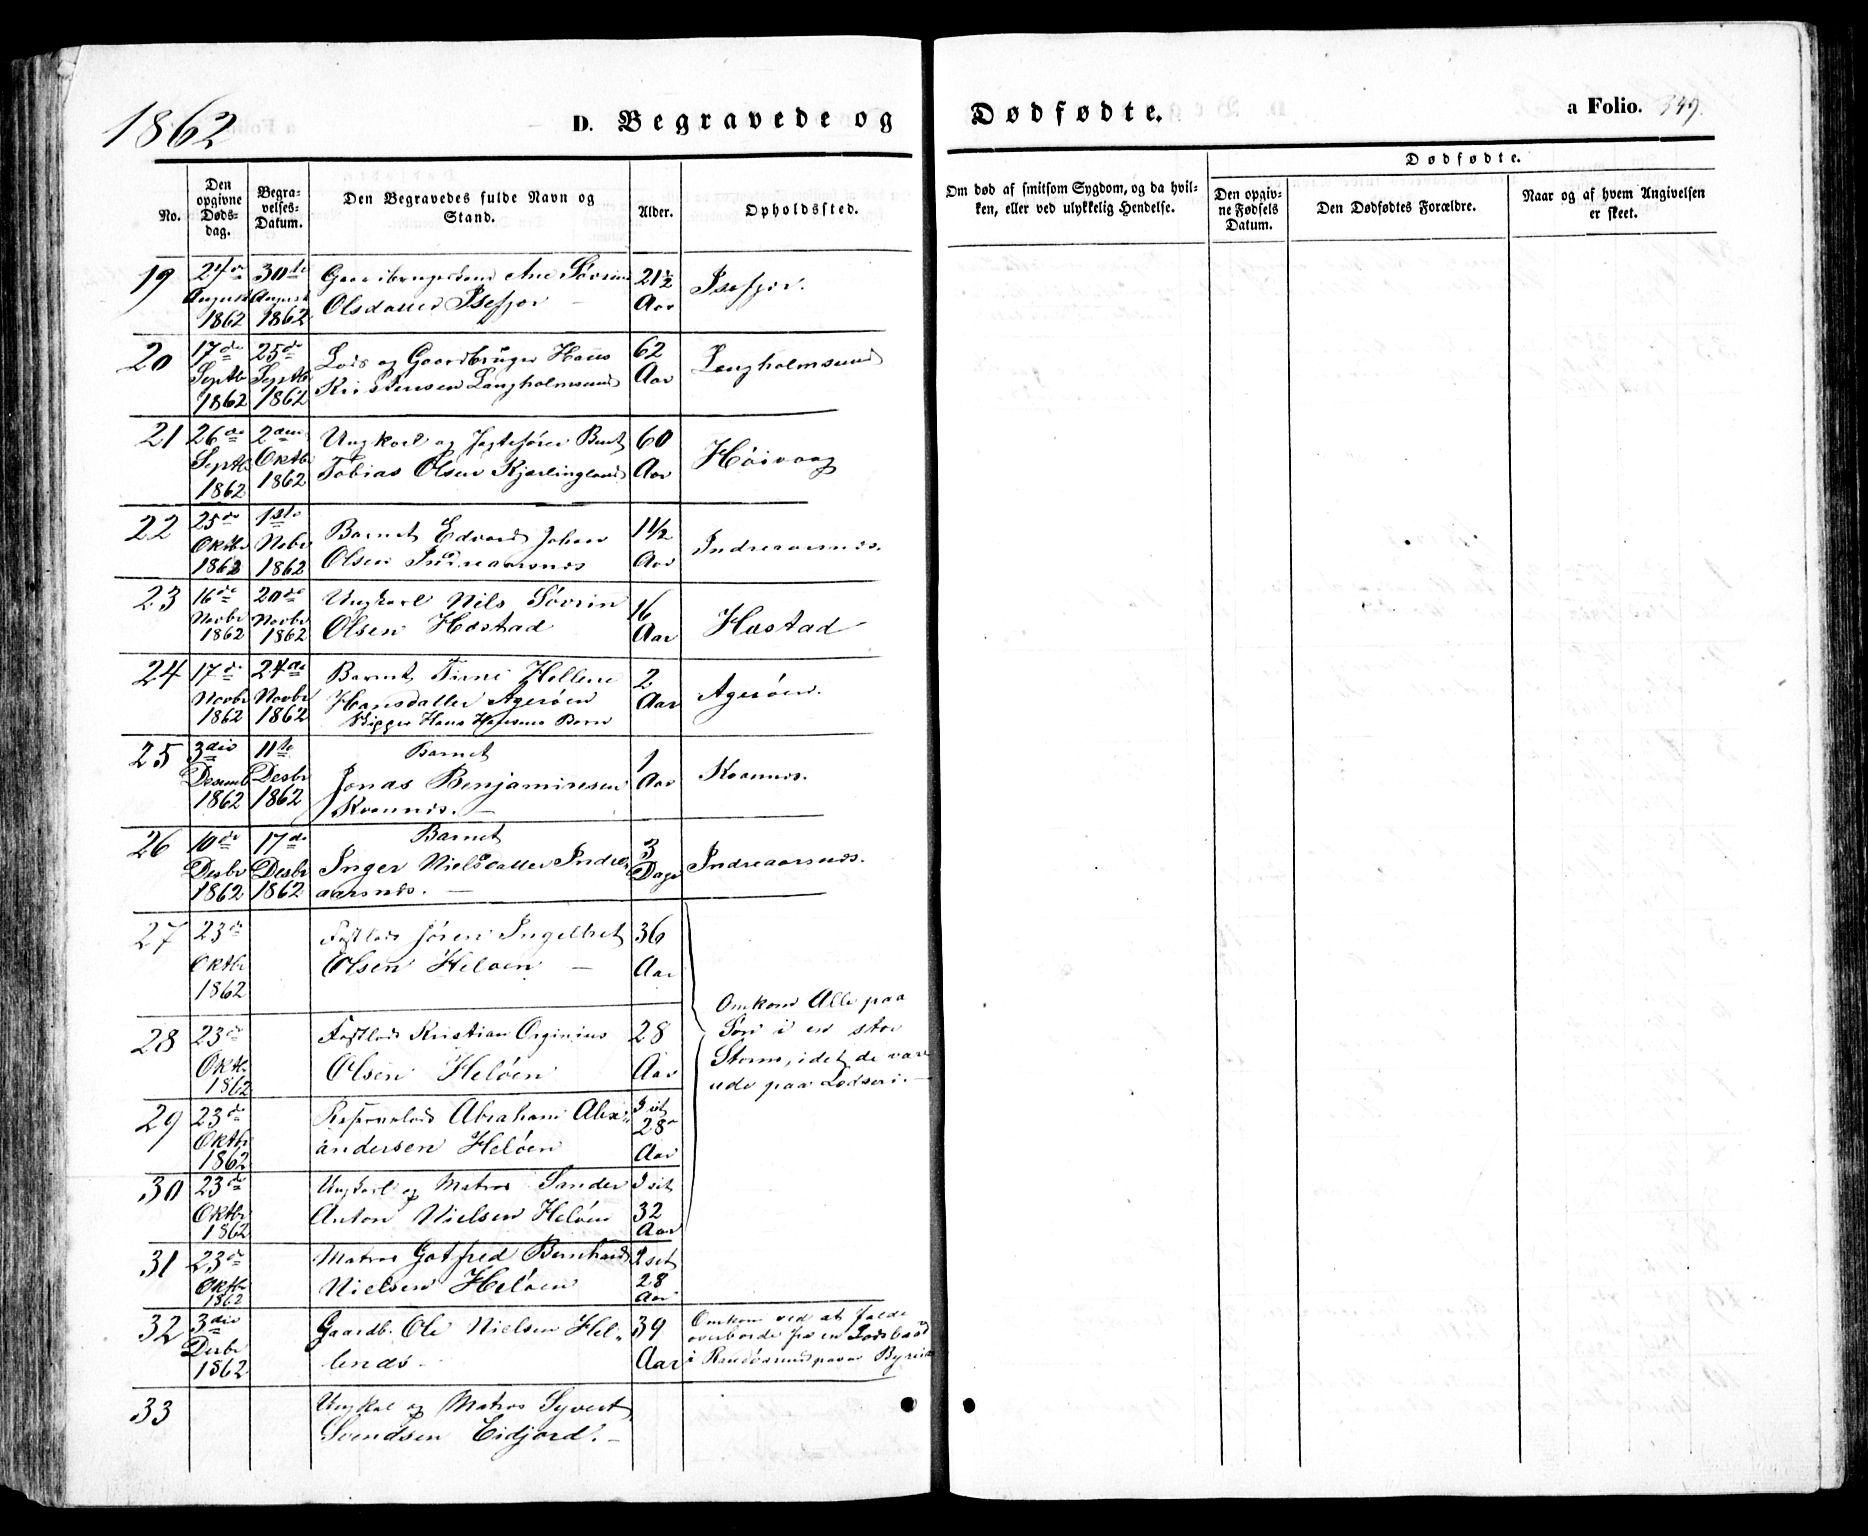 1862
D. Begravede og
Dødfødte.
a Folio. 349.
No.
Den opgivne Døds-dag.
Begra-velses-Datum.
Den Begravedes fulde Navn og Stand.
Alder.
Opholdssted.
Om død af smitsom Sygdom, og da hvil-ken, eller ved ulykkelig Hendelse.
Dødfødte.
Den opgiv-ne Fødsels Datum.
Den Dødfødtes Forældre.
Naar og af hvem Angivelsen er skeet.
19 27de August 1862 30te August 1862
Ane Sövrine
Olsdatter Isefjor
21½ Aar
Isefjor.
20 17de Septb 1862 25de Septb 1862
Lods og Gaardbruger Hans
Kristensen Langholmsund
62 Aar
Langholmsund
21 26de Septb 1862 2den Oktbr 1862
Ungkarl og Jagtefører Bent
Tobias Olsen Kjærlingland
60 Aar
Höivaag
22 25de Oktbr 1862 1ste Nobr 1862
Barnet Edvard Johan
Olsen Indreaarsnes
11½ Aar
Indreaarsnes.
23 16de Novbr 1862 20de Novbr 1862
Ungkarl Nils Sövrin
Olsen Hæstad
16 Aar
Hæstad
24 17de Novbr 1862 24de Novbr 1862
Barnet Tine Hellene
Hansdatter Ageröen
Hans Hansens Barn
2 Aar
Ageröen.
25 3die Desemb 1862 11te Desbr 1862
Barnet
Jonas Benjaminsen
Kvannes. —
1 Aar
Kvannes.
26 10de Desbr 1862 17de Desbr 1862
Barnet
Inger Nielsdatter Indre-
aarsnes. —
3 Dage
Indreaarsnes.
27 23de Oktbr 1862
Fastlods Jören Ingelbret
Olsen Helöen —
36 Aar
Omkom Alle paa
Söen i en stor
Storm, idet de var
ude paa Lodseri. —
28 23de Oktb. 1862
Fastlods Kristian Orginius
Olsen Helöen
28 Aar
29 23de Oktbr 1862
Reservelods Abraham Alex-
andersen Helöen
28 Aar
30 23de Oktbr 1862
Ungkarl og Matros Sander
Anton Nielsen Helöen
32 Aar
31 23de Oktbr 1862
Matros Gotfred Bernhard
Nielsen Helöen
28 Aar
32 3die Desbr 1862
Gaardb. Ole Nielsen Hel-
39 Aar
Omkom ved at falde
overborde fra en Lodsbaad
i Randösund
33
Ungkal og Matros Syvert
Svendsen Eidjord. —